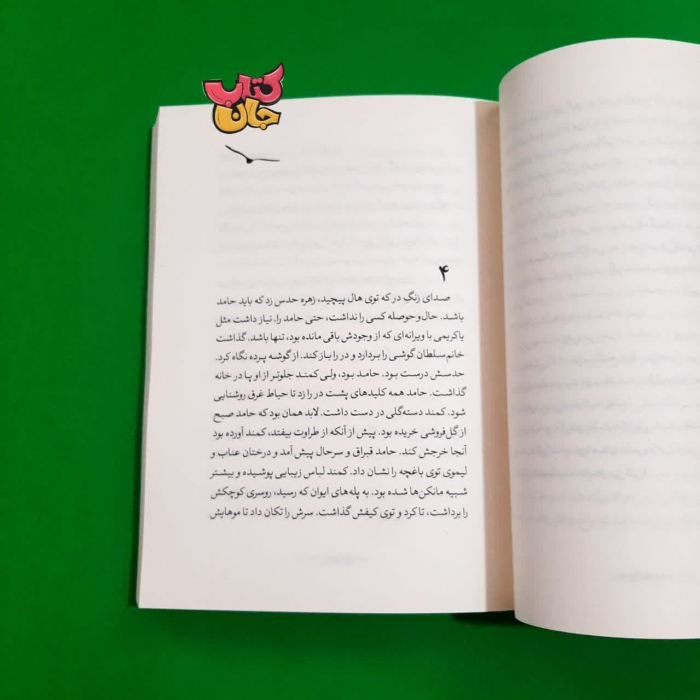 کتاب
جان
۴
صدای زنگِ در که توی هال پیچید، زهره حدس زد که باید حامد
باشد. حال و حوصله کسی را نداشت، حتی حامد را. نیاز داشت مثل
یاکریمی با ویرانه‌ای که از وجودش باقی مانده بود، تنها باشد. گذاشت
خانم‌سلطان گوشی را بردارد و در را باز کند. از گوشه پرده نگاه کرد.
حدسش درست بود. حامد بود، ولی کمند جلوتر از او پا در خانه
گذاشت. حامد همه کلیدهای پشت در را زد تا حیاط غرق روشنایی
شود. کمند دسته‌گلی در دست داشت. لابد همان بود که حامد صبح
از گل‌فروشی خریده بود. پیش از آنکه از طراوت بیفتد، کمند آورده بود
آنجا خرجش کند. حامد قبراق و سرحال پیش آمد و درختان عناب و
لیموی توی باغچه را نشان داد. کمند لباس زیبایی پوشیده و بیشتر
شبیه مانکن‌ها شده بود. به پله‌های ایوان که رسید، روسری کوچکش
را برداشت، تا کرد و توی کیفش گذاشت. سرش را تکان داد تا موهایش